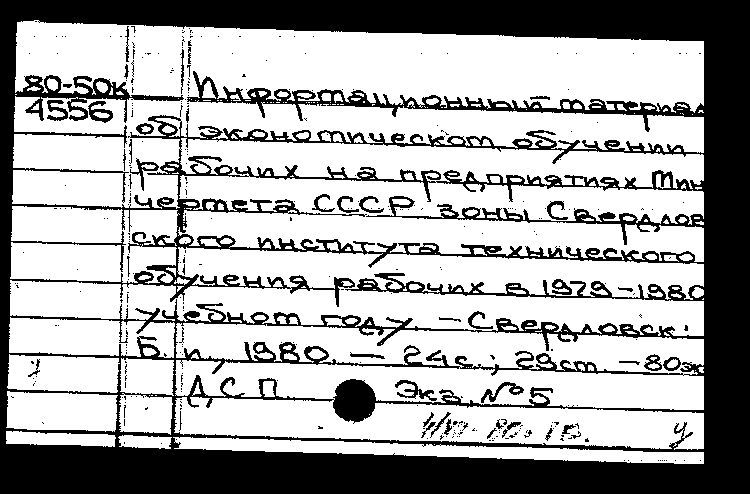 80-50к
4556
Информационный материал
об экономическом обучении
рабочих на предприятиях Мин
чермета СССР зоны Свердлов
ского института технического
обучения рабочих в 1979-1980
учебном году. - Свердловск:
Б. и., 1980. - 24 с.; 29 см. - 80 эк
Д С П Экз. № 5
у